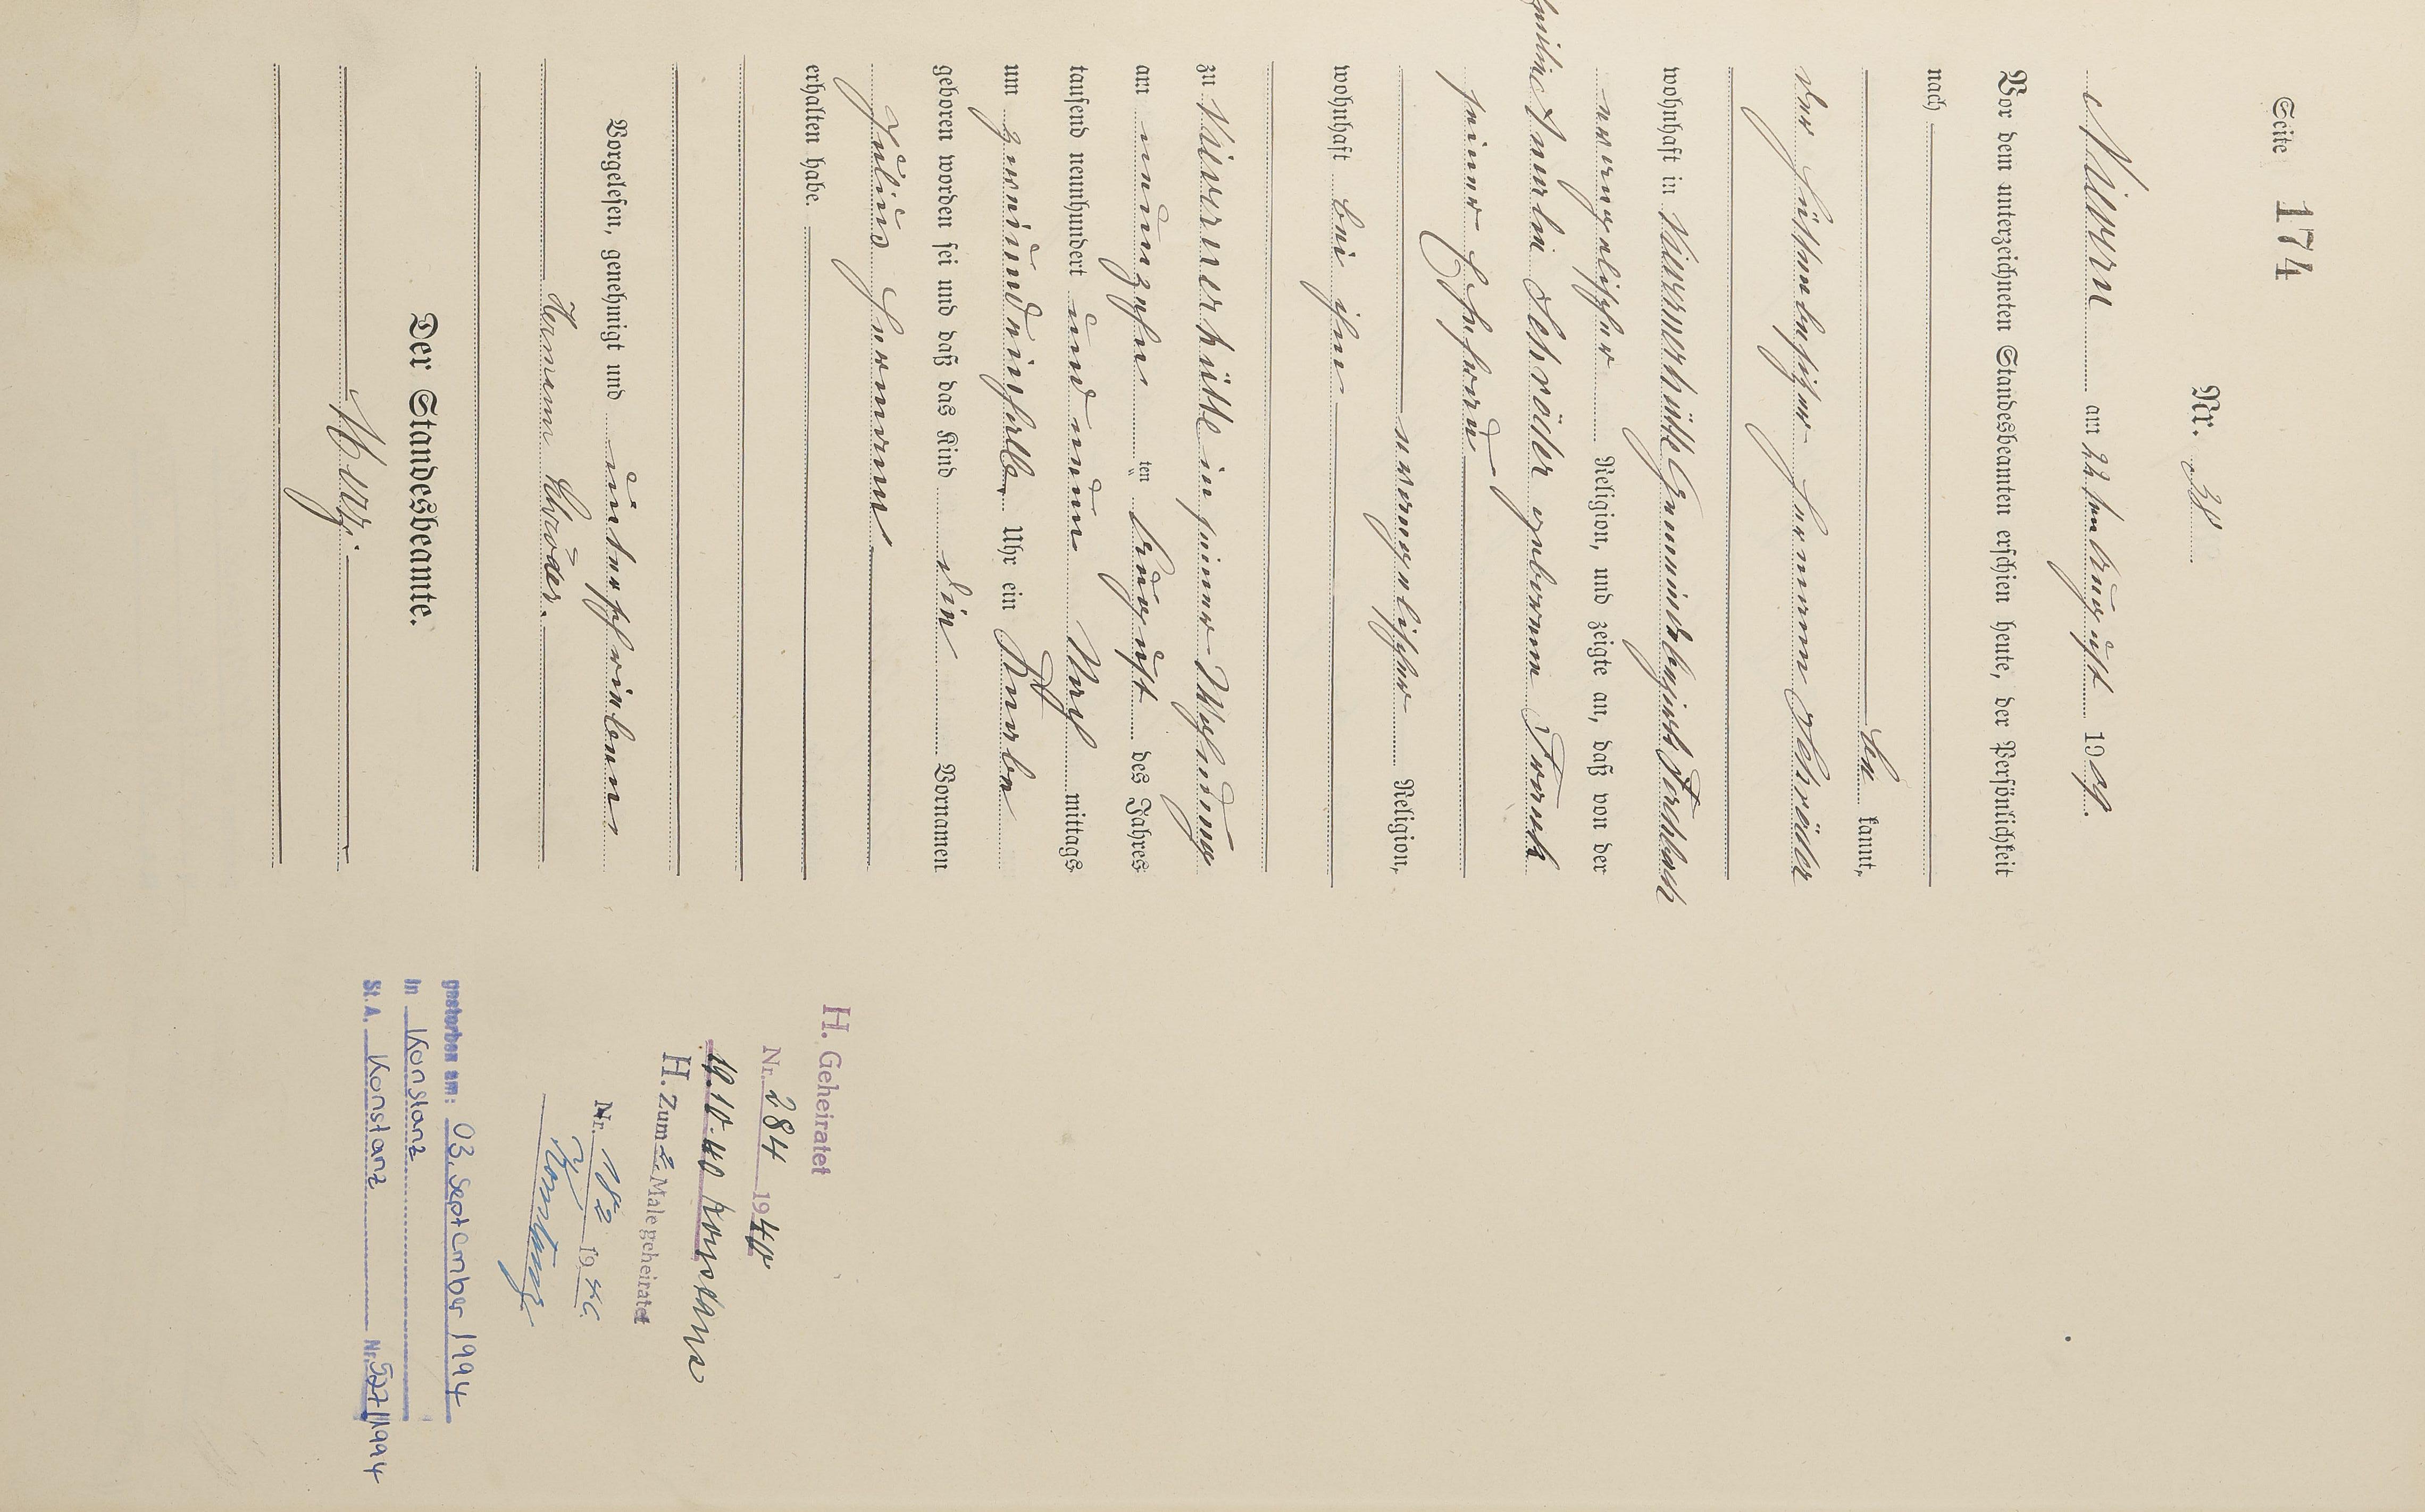 Seite 174
Nr. 38
Nivern am 22ten August 1909.
Vor dem unterzeichneten Standesbeamten erschien heute, der Persönlichkeit
nach
be kannt,
der Hüttenbesitzer Hermann Schröder
wohnhaft in Nieverner Hütte Gemeindebezirk Fachbach
evangelischer Religion, und zeigte an, daß von der
Amalie Schröder geborenen Frank
seiner Ehefrau
evangelischer Religion,
wohnhaft bei ihm
zu Nievernerhütte in seiner Wohnung
am neunzehn ten August des Jahres
tausend neunhundert und neun Nach mittags
um zweiundeinhalb Uhr ein Knabe
geboren worden sei und daß das Kind die Vornamen
Julius Hermann
erhalten habe.
Vorgelesen, genehmigt und unterschrieben
Hermann Schröder.
Der Standesbeamte.
H. Geheiratet
Nr. 284 1940
19.10.40 Konstanz
H. Zum 2. Male geheiratet
Nr. 182 1946
Konstanz
gestorben am: 03. September 1994
in Konstanz
St. A. Konstanz Nr. 527/1994